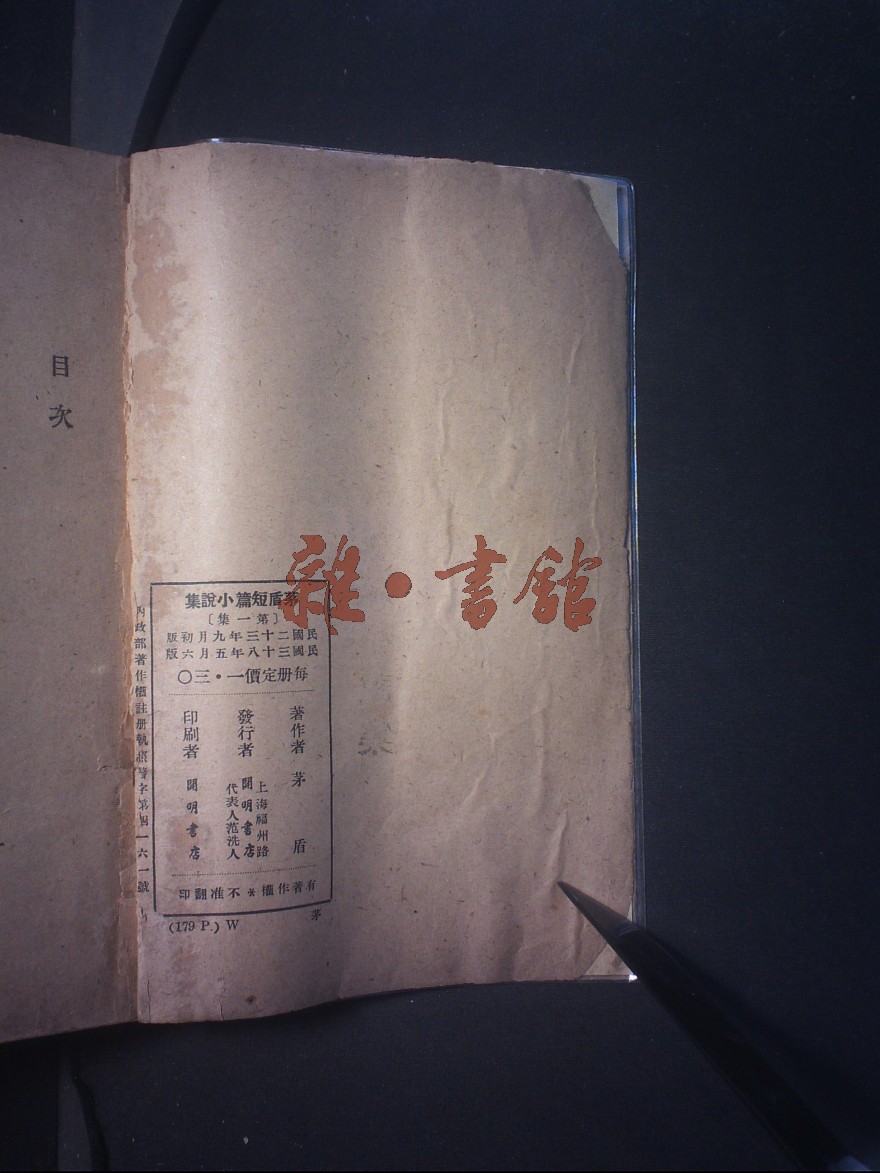 茅盾短篇小說集
〔第一集〕
民國二十三年九月初版
民國三十八年五月六版
每册定價一·三〇
著作者 茅盾
發行者
上海福州路
開明書店
代表人范洗人
印刷者 開明書店
有著作權＊不准翻印
內政部著作權註册執照警字第四一六一號
(179 P.) W
茅
目次
雜·書館